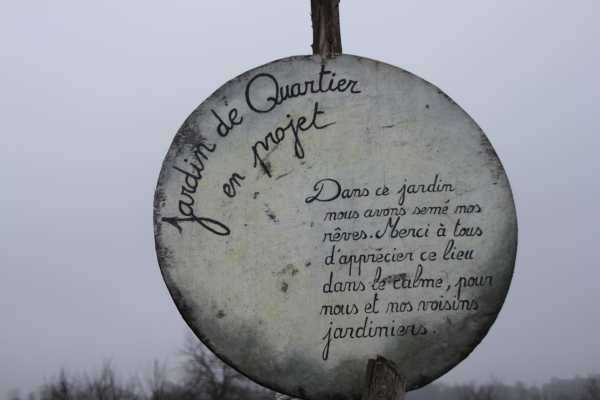 Jardin de Quartier
en projet
Dans ce jardin
nous avons semé nos
rêves. Merci à tous
d'apprécier ce lieu
dans le calme, pour
nous et nos voisins
jardiniers.